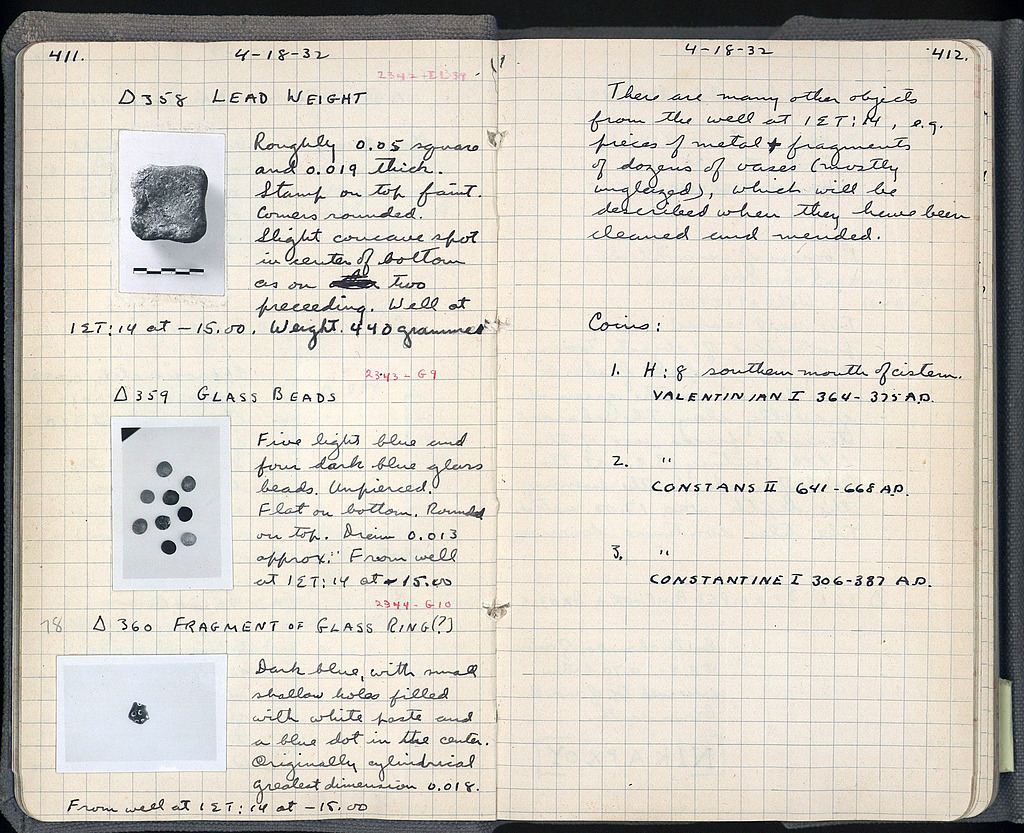 411.
4-18-32
2342-IL 39
Δ358 LEAD WEIGHT
Roughly 0.05 square
and 0.019 thick.
Stamp on top faint.
Corners rounded.
Slight concave spot
in center of bottom
as on two
preceeding. Well at
1ΣT:14 at -15.00. Weight. 440 grammes
2343-G9
Δ359 GLASS BEADS
Five light blue and
four dark blue glass
beads. Unpierced.
Flat on bottom. Rounded
on top. Diam 0.013
approx: From well
at 1ΣT:14 at -15.00
2344-G10
78 Δ 360 FRAGMENT OF GLASS RING(?)
Dark blue, with small
shallow holes filled
with white paste and
a blue dot in the center.
Originally cylindrical
greatest dimension 0.018.
From well at 1ΣT:14 at -15.00
4-18-32
412.
There are many other objects
from the well at 1ΣT:14, e.g.
pieces of metal + fragments
of dozens of vases (mostly
unglazed), which will be
described when they have been
cleaned and mended.
Coins:
1. H:8 southern mouth of cistern.
VALENTINIAN I 364-375 A.D.
2. "
CONSTANS II 641-668 A.D.
3. "
CONSTANTINE I 306-387 A.D.